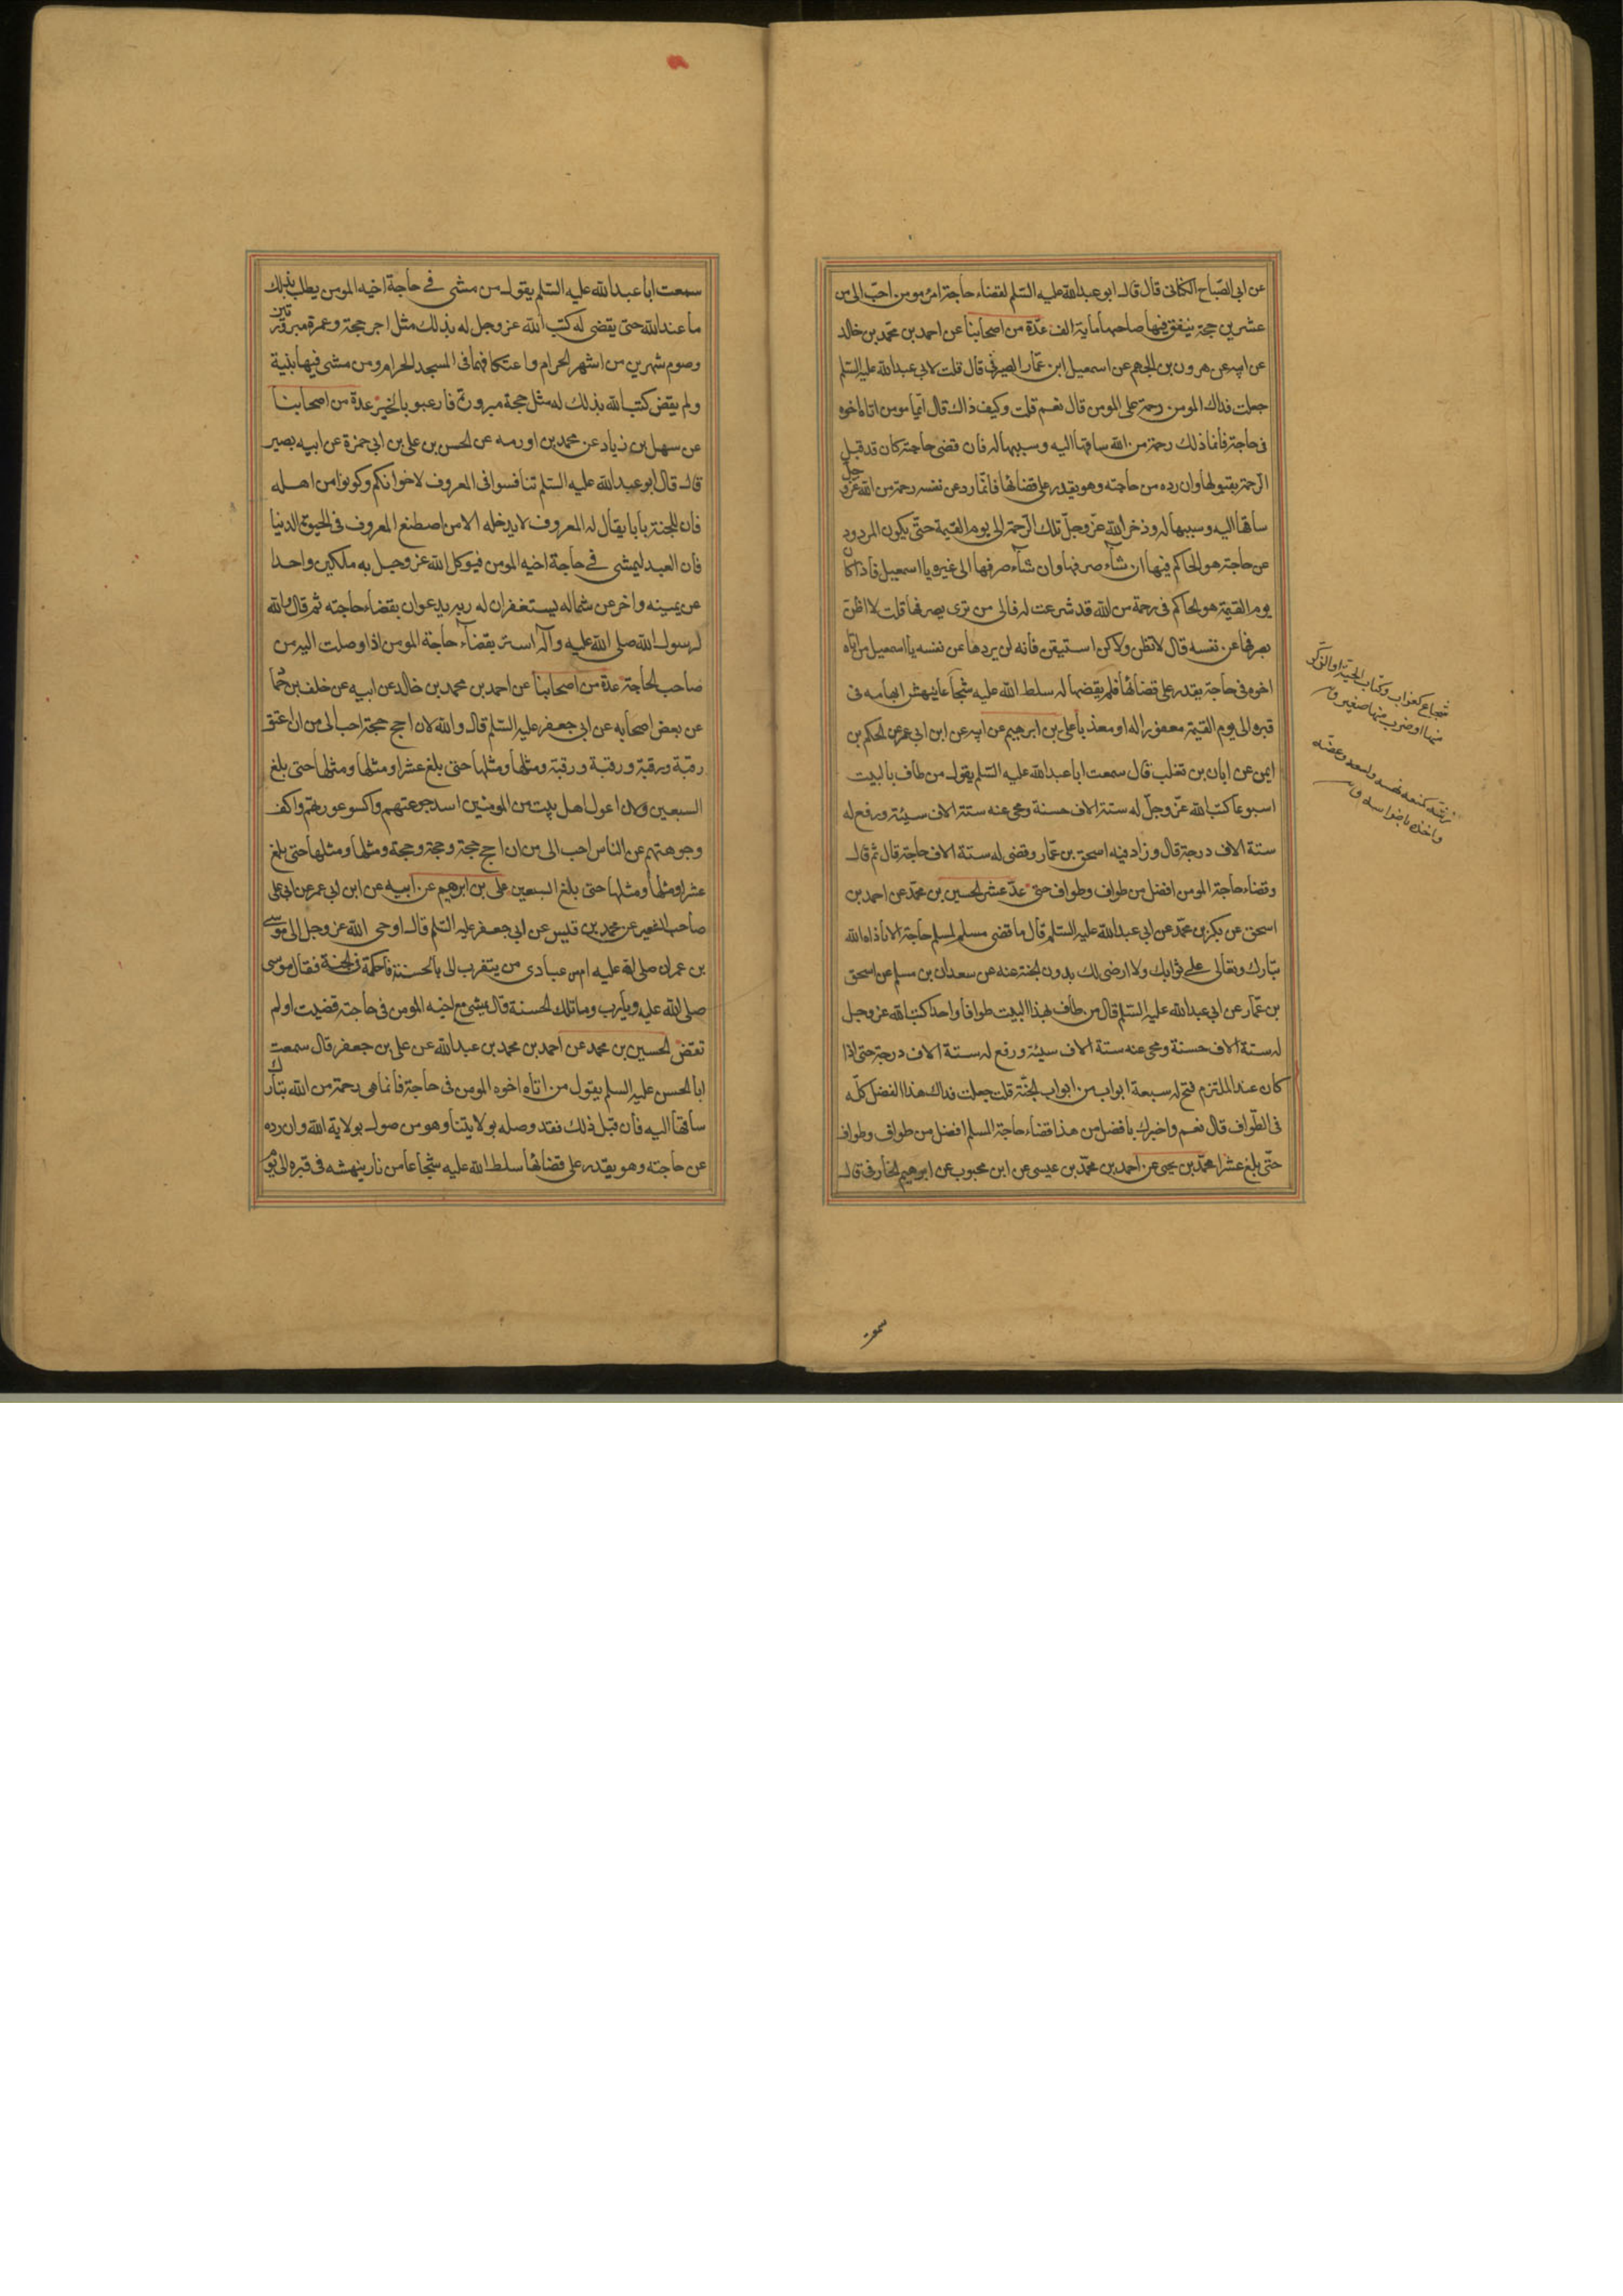 عن ابى الصباح الكنانى قال قال ابو عبدالله عليه السّلم لقضاء حاجة امرء مومن احبّ الىّ من
عشرين حجة ينفق فيها صاحبها ماية الف عدّة من اصحابنا عن احمد بن محمّد بن خالد
عن ابيه عن هرون بن الجهم عن اسمعيل ابن عمّار الصيرفى قال قلت لابى عبدالله عليه السّلم
جعلت فداك المومن رحمة على المومن قال نعم قلت وكيف ذاك قال ايّما مومن اتاه اخوه
فى حاجة فانما ذلك رحمة من الله ساقها اليه وسببها له فان قضى حاجته كان قد قبل
الرّحمة بقبولها وان رده من حاجته وهو يقدر على قضائها فانّما رد عن نفسه رحمة من الله عزّ وجلّ
ساقها اليه وسببها له وذخر الله عزّ وجلّ تلك الرّحمة الى يوم القيمة حتّى يكون المردود
عن حاجته هو الحاكم فيها ان شاء صرفها وان شاء صرفها الى غيره يا اسمعيل فاذا كان
يوم القيمة هو الحاكم فى رحمة من الله قد شرعت له فالى من ترى يصرفها قلت لا اظنّ
يصرفها عن نفسه قال لا تظن ولاكن استيقن فانه لن يردها عن نفسه يا اسمعيل من اتاه
اخوه فى حاجة يقدر على قضائها فلم يقضها له سلط الله عليه شجاعا ينهش ابهامه فى
قبره الى يوم القيمة مغفورا له او معذبا على بن ابرهيم عن ابيه عن ابن ابى عمير عن الحكم بن
ايمن عن ابان بن تغلب قال سمعت ابا عبدالله عليه السّلم يقول من طاف بالبيت
اسبوعا كتب الله عزّ وجلّ له ستة الاف حسنة ومحى عنه ستة الاف سيئة ورفع له
ستة الاف درجة قال وزاد فيه اسحق بن عمّار وقضى له ستة الاف حاجة قال ثم قال
وقضاء حاجة المومن افضل من طواف وطواف حتى عدّ عشرا الحسين بن محمّد عن احمد بن
اسحق عن بكر بن محمّد عن ابى عبدالله عليه السّلم قال ما قضى مسلم لمسلم حاجة الا ناداه الله
تبارك وتعالى على ثوابك ولا ارضى لك بدون الجنة عنه عن سعدان بن مسلم عن اسحق
بن عمّار عن ابى عبدالله عليه السّلم قال من طاف بهذا البيت طوافا واحدا كتب الله عز وجل
له ستة الاف حسنة ومحى عنه ستة الاف سيئة ورفع له ستة الاف درجة حتى اذا
كان عند الملتزم فتح له سبعة ابواب من ابواب الجنّة قلت جعلت فداك هذا الفضل كلّه
فى الطّواف قال نعم واخبرك بافضل من هذا قضاء حاجة المسلم افضل من طواف وطواف
حتّى بلغ عشرا محمّد بن يحيى عن احمد بن محمّد بن عيسى عن ابن محبوب عن ابرهيم الخارفى قال
شجاع كغراب وكتاب الحية او الذكر
منها او ضرب منها صغير ق
نهشه كمنعه نهسه ولسعه وعضه
واخذه باضراسه ق
سمعت
سمعت ابا عبدالله عليه السّلم يقول من مشى فى حاجة اخيه المومن يطلب بذلك
ما عند الله حتى يقضى له كتب الله عز وجل له بذلك مثل اجر حجة وعمرة مبرورتين
وصوم شهرين من اشهر الحرام واعتكافهما فى المسجد الحرام ومن مشى فيها بنية
ولم يقض كتب الله بذلك له مثل حجة مبرورة فارغبو بالخير عدة من اصحابنا
عن سهل بن زياد عن محمد بن اورمه عن الحسن بن على بن ابى حمزة عن ابيه بصير
قال قال ابو عبدالله عليه السّلم تنافسوا فى المعروف لاخوانكم وكونوا من اهله
فان للجنة بابا يقال له المعروف لا يدخله الا من اصطنع المعروف فى الحيوة الدنيا
فان العبد ليمشى فى حاجة اخيه المومن فيوكل الله عز وجل به ملكين واحدا
عن يمينه واخر عن شماله يستغفران له ربه يدعوان بقضاء حاجته ثم قال والله
لرسول الله صلى الله عليه وآله اسر بقضاء حاجة المومن اذا وصلت اليه من
صاحب الحاجة عدة من اصحابنا عن احمد بن محمد بن خالد عن ابيه عن خلف بن حماد
عن بعض اصحابه عن ابى جعفر عليه السّلم قال والله لان احج حجة احب الى من ان اعتق
رقبة ورقبة ورقبة ورقبة ومثلها ومثلها حتى بلغ عشرا ومثلها ومثلها حتى بلغ
السبعين ولان اعول اهل بيت من المومنين اسد جوعتهم واكسو عورتهم واكف
وجوههم عن الناس احب الى من ان احج حجة وحجة وحجة ومثلها ومثلها حتى بلغ
عشرا ومثلها ومثلها حتى بلغ السبعين على بن ابرهيم عن ابيه عن ابن ابى عمير عن ابى على
صاحب الشعير عن محمد بن قليس عن ابى جعفر عليه السّلم قال اوحى الله عز وجل الى موسى
بن عمران صلى الله عليه من عبادى من يتقرب الى بالحسنة فاحكمه فى الجنة فقال موسى
صلى الله عليه ويارب وما تلك الحسنة قال يمشى مع اخيه المومن فى حاجته قضيت او لم
تقض الحسين بن محمد عن احمد بن محمد بن عبدالله عن على بن جعفر قال سمعت
ابا الحسن عليه السلم يقول من اتاه اخوه المومن فى حاجة فانما هى رحمة من الله تبارك
ساقها اليه فان قبل ذلك فقد وصله بولايتنا وهو موصول بولاية الله وان رده
عن حاجته وهو يقدر على قضائها سلط الله عليه شجاعا من نار ينهشه فى قبره الى يوم